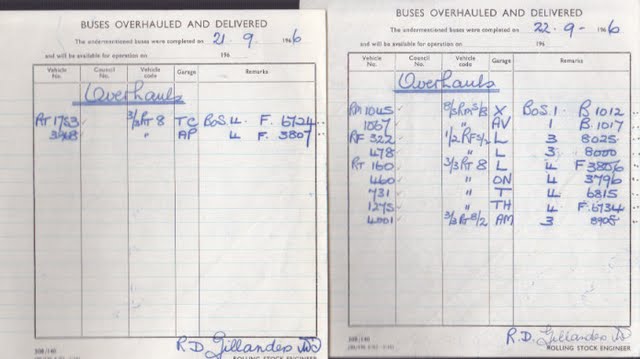 BUSES OVERHAULED AND DELIVERED
The undermentioned buses were completed on 21. 9. 1966
and will be available for operation on 196
Vehicle No. Council No. Vehicle code Garage Remarks
Overhauls
RT 1753 3/3RT 8 TC BOS. 4. F. 6724
" AP 4 F. 3807
R.D. Gillanders
ROLLING STOCK ENGINEER
BUSES OVERHAULED AND DELIVERED
The undermentioned buses were completed on 22-9- 1966
and will be available for operation on 196
Vehicle No. Council No. Vehicle code Garage Remarks
Overhauls
RM 1045 X BOS. 1. B 1012
1067 " AV 1 B 1017
RF 322 1/2 RF 5/2 L 3 8025
478 " L 3 8000
RT 160 3/3 RT 8 L 4 F 3806
460 " ON 4 3796
731 " T 4 6815
1275 " TH 4 F. 6734
4001 3/3 RT 8/2 AM 3 8905
308/140
R.D. Gillanders
ROLLING STOCK ENGINEER